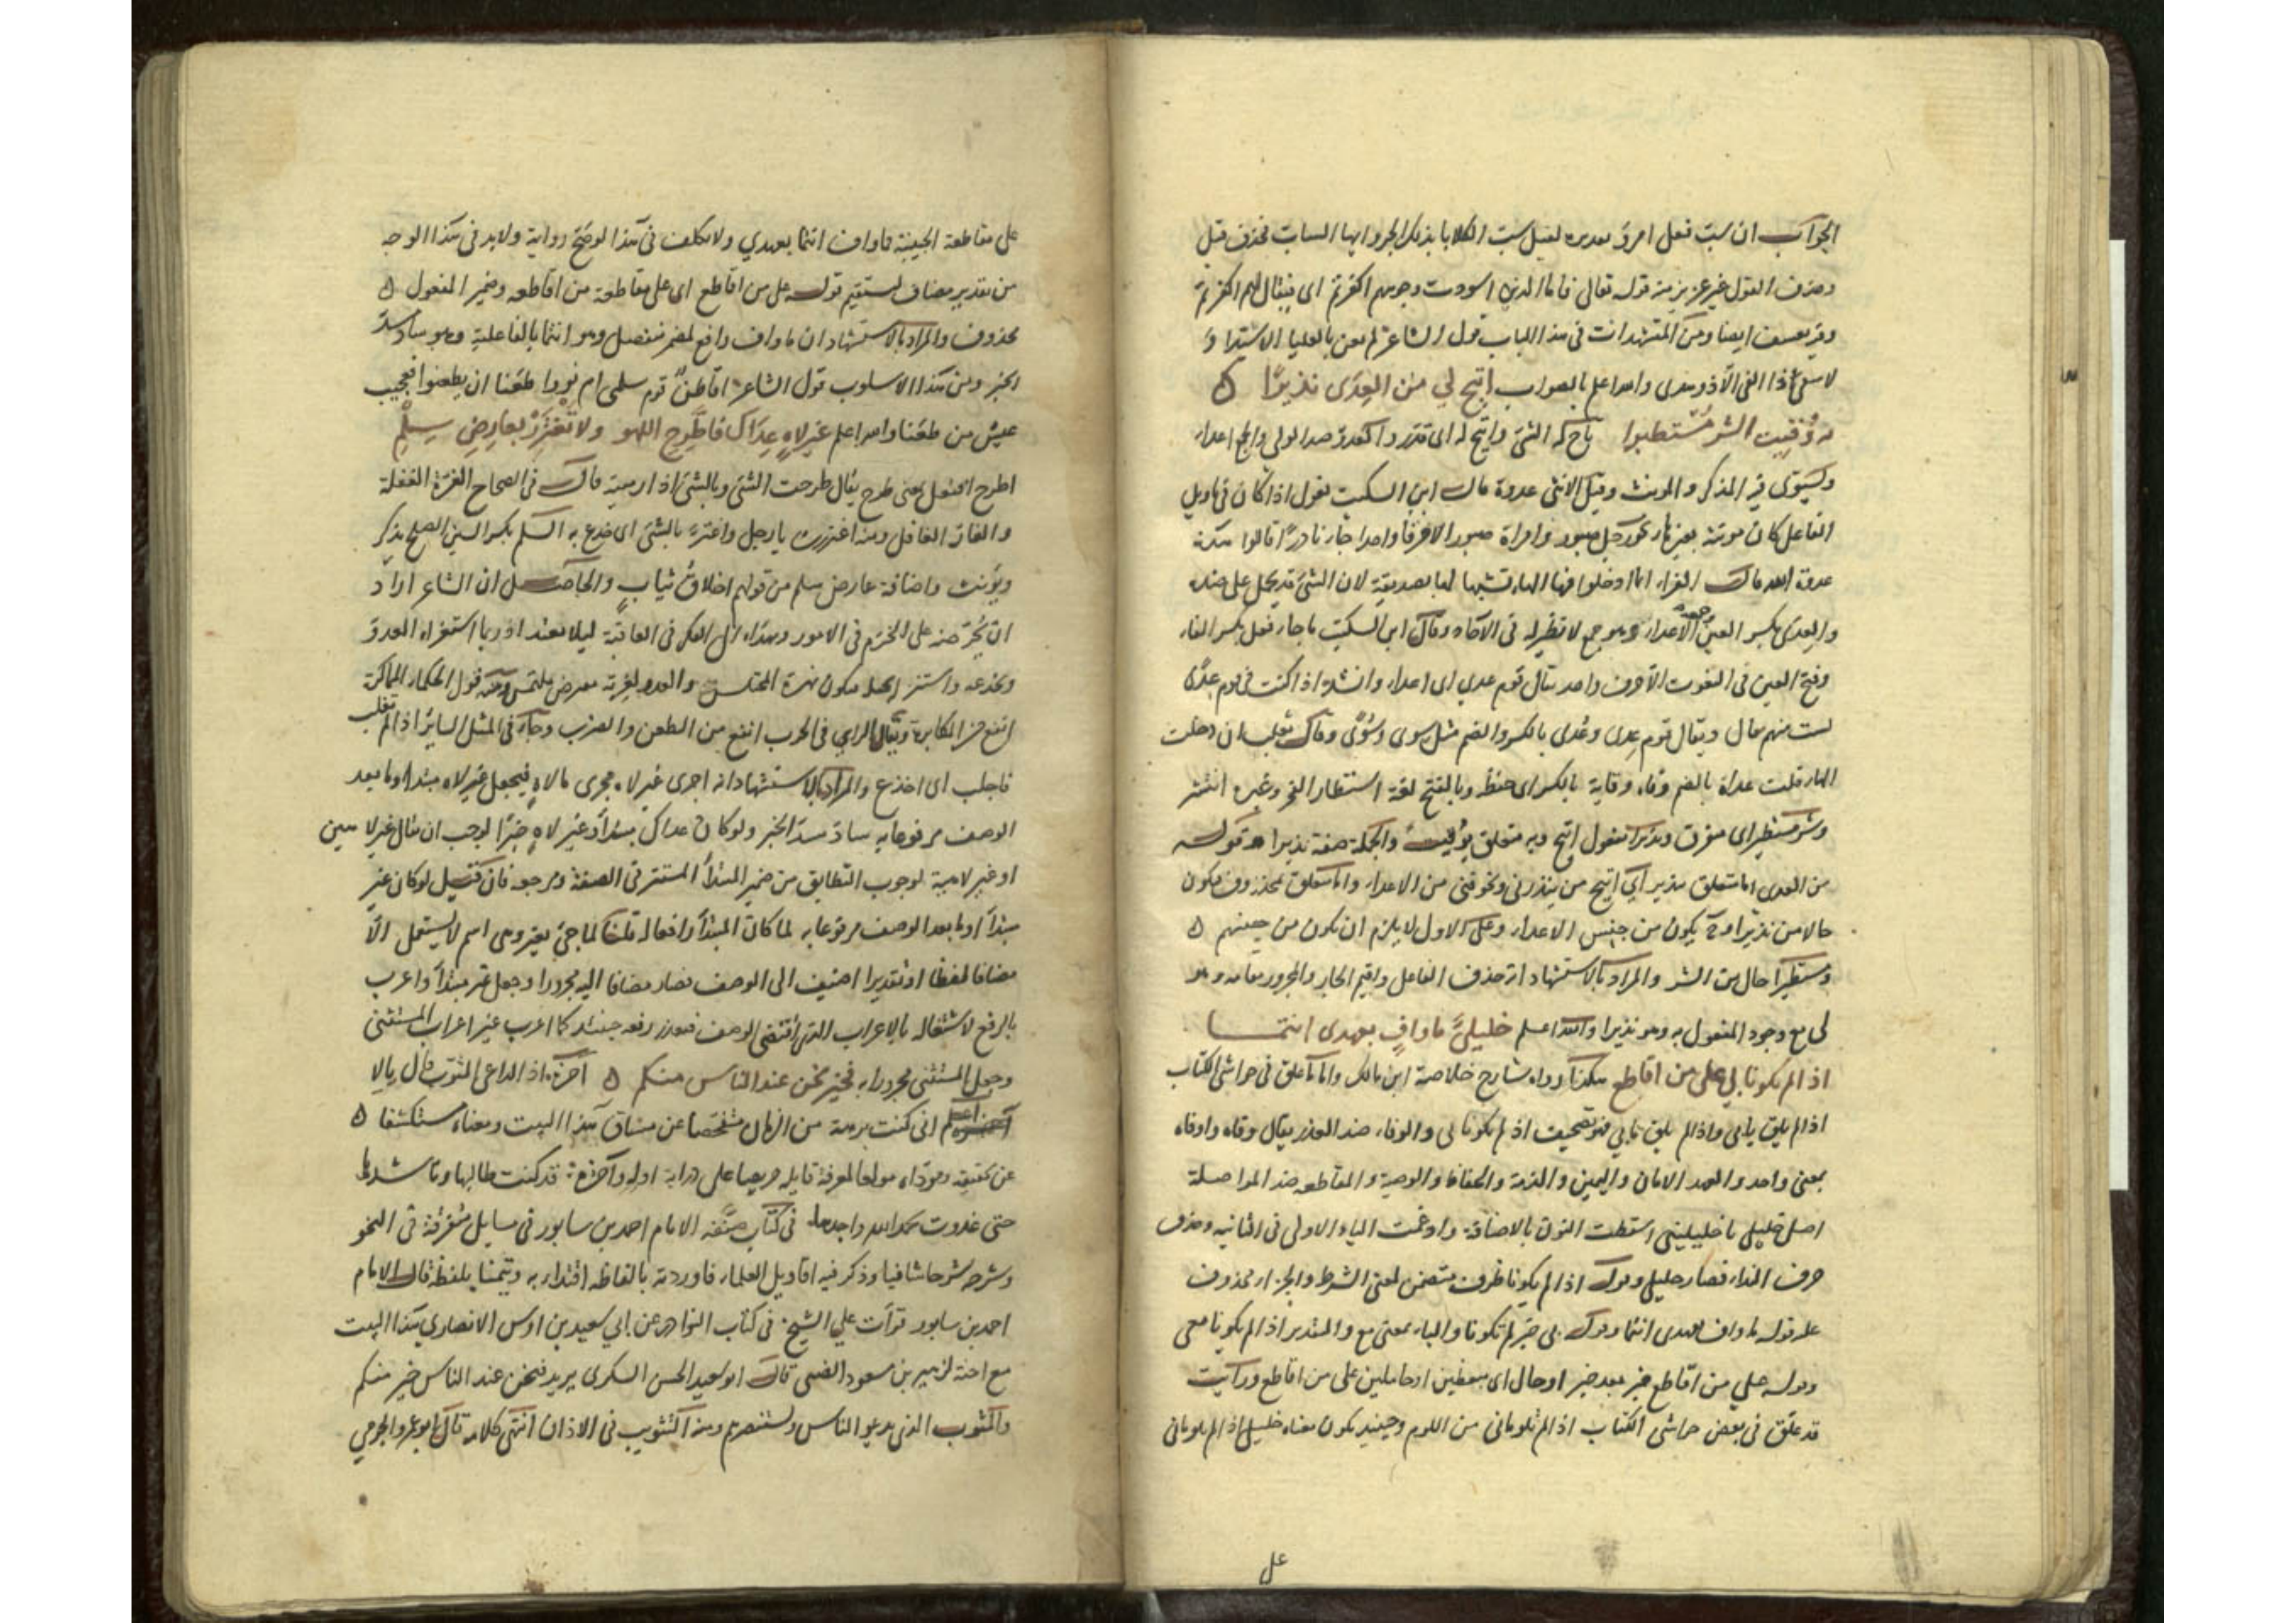 الجواب ان سبّ فعل امرؤ تقديره لقيل سبّ الكلابا بذلك الجرو ايها الساب فحذف قيل
وحذف القول غير عزيز منه قوله تعالى فاما الذين اسودت وجوههم اكفرتم اى فيقال لهم اكفرتم
وفيه تعسف ايضا ومن المستشهدات فى هذا الباب قول الشاعر لم يعن بالعليا الا سيدا و
لا شفى ذا الغى الا ذو هدى والله اعلم بالصواب اتيح لي من العِدَى نذيرًا
به وُقِيت الشر مستطيرا تاح له الشئ واتيح له اى قدر والعدوّ ضد الولى والجمع اعداء
ويستوى فيه المذكر والمونث وقيل الانثى عدوة قال ابن السكيت فعول اذا كان فى تاويل
الفاعل كان مونثه بغير هاء نحو رجل صبور وامراة صبور الا حرفا واحدا جاء نادرًا قالوا هذه
عدوة الله قال الفراء انما ادخلوا فيها الهاء تشبيها لها بصديقة لان الشئ قد يحمل على ضده
والعدى بكسر العين الاعداء وهو جمع لا نظير له فى الآحاد وقال ابن السكيت ما جاء فعل بكسر الفاء
وفتح العين فى النعوت الا حرف واحد يقال قوم عدى اى اعداء وانشد اذا كنت فى قوم عِدًى
لست منهم قال ويقال قوم عِدى وعُدى بالكسر والضم مثل سِوى وسُوًى وقال ثعلب ان دخلت
الهاء قلت عداة بالضم وقاه وقاية بالكسر اى حفظ وبالفتح لغة استطار الفجر وغيره انتشر
وشر مستطير اى مفرق ونذيرا مفعول اتيح وبه متعلق بوُقيتُ والجملة صفة نذيرا وقوله
من العدى اما متعلق بنذير اى اتيح من ينذرنى ويخوفنى من الاعداء واما متعلق بمحذوف فيكون
حالا من نذيرا وح يكون من جنس الاعداء وعلى الاول لا يلزم ان يكون من جنسهم
ومستطيرا حال من الشر والمراد بالاستشهاد انه حذف الفاعل واقيم الجار والمجرور مقامه وهو
لى مع وجود المفعول به وهو نذيرا والله اعلم خليليَّ ما وافٍ بعهدى انتمـا
اذ الم يكونا لى على من اقاطع هكذا رواه شارح خلاصة ابن مالك واما ما علق فى حواشى الكتاب
اذا لم يلق بابى واذا لم يلق نابى فهو تصحيف اذا لم يكونا لى والوفاء ضد الغدر يقال وفاه واوفاه
بمعنى واحد والعهد الامان واليمين والذمة والحفاظ والوصية والمقاطعة ضد المواصلة
اصل خليلي يا خليلينى اسقطت النون بالاضافة وادغمت الياء الاولى فى الثانية وحذف
حرف النداء فصار خليلى وقوله اذا لم يكونا ظرف متضمن لمعنى الشرط والجزاء محذوف
على قوله ما واف بعهدى انتما وقوله لى خبر لم يكونا والباء بمعنى مع والتقدير اذا لم يكونا معى
وقوله على من اقاطع خبر بعد خبر او حال اى متفقين او حاملين على من اقاطع ورايت
قد علّق فى بعض حواشى الكتاب اذا لم تلومانى من اللوم وحينئذ يكون معناه خليلى اذا لم تلومانى
على
على مقاطعة الحبيبة فاواف انتما بعهدي ولا تكلف فى هذا لو صحّ رواية ولا بد فى هذا الوجه
من تقدير مضاف ليستقيم قوله على من اقاطع اى على مقاطعة من اقاطعه وضمير المفعول
محذوف والمراد بالاستشهاد ان ما واف رافع لمضمر منفصل وهو انتما بالفاعلية وهو ساد مسدّ
الخبر ومن هذا الاسلوب قول الشاعر اقاطنٌ قوم سلمى ام نووا ظعنا ان يظعنوا فعجيب
عيش من ظعنا والله اعلم غيرُ لاهٍ عِدَاكَ فاطَّرِحِ اللهو ولا تَغْتَرِرْ بعارِضِ سِلْمٍ
اطرح افتعل بمعنى طرح يقال طرحت الشئ وبالشئ اذا رميته قال فى الصحاح الغرة الغفلة
والغارّ الغافل ومنه اغتررت يا رجل واغترّ بالشئ اى خدع به السلم بكسر السين الصلح يذكر
ويؤنث واضافة عارض سلم من قولهم اخلاقُ ثيابٍ والحاصل ان الشاعر اراد
ان يحرّضه على الحزم فى الامور وهداه الى الفكر فى العاقبة ليلا يغتر اذ ربما استغراه العدوّ
وخدعه واستنزله فيكون نهزة المختلس والعدو لغرته معرض ملتمس ومنه قول الحكماء المماكرة
انفع من المكابرة ويقال الراي فى الحرب انفع من الطعن والضرب وجاء فى المثل الساير اذا لم تغلب
فاخلب اى اخدع والمراد بالاستشهاد انه اجرى غير لاه مجرى ما لاهٍ فيجعل غير لاه مبتدا وما بعد
الوصف مرفوعا به سادّ مسدّ الخبر ولو كان عداك مبتدأ وغير لاهٍ خبرًا لوجب ان يقال غير لاهين
او غير لاهية لوجوب التطابق من ضمير المبتدأ المستتر فى الصفة ومرجعه فان قيل لو كان غير
مبتدأ وما بعد الوصف مرفوعا به لما كان المبتدأ رافعا له قلنا لما جئ بغير وهى اسم لا يستعمل الّا
مضافا لفظا او تقديرا اضيف الى الوصف فصار مضافا اليه مجرورا وجعل غير مبتدأ واعرب
بالرفع لاشتغاله بالاعراب الذى اقتضى الوصف فيقدر رفعه حينئذ كما اعرب غير اعراب المستثنى
وجعل المستثنى مجرورا به فخير نحن عند الناس منكم آخره اذا الداعى المثوب قال يالا
اعلم انى كنت برهة من الزمان متفحصا عن مساق هذا البيت ومعناه مستكشفا
عن حقيقته وموّداه مولعا لمعرفة قايله حريصا على دراية اوله وآخره قد كنت طالبها وناشدها
حتى غدوت بحمد الله واجدها فى كتاب صنّفه الامام احمد بن سابور فى مسايل متفرقة فى النحو
وشرحه شرحا شافيا وذكر فيه اقاويل العلماء فاوردته بالفاظه اقتداء به وتيمنا بلفظه قال الامام
احمد بن سابور قرأت علي الشيخ فى كتاب النوادر عن ابي سعيد بن اوس الانصاري هذا البيت
مع اخته لزهير بن مسعود الضبى قال ابو سعيد الحسن السكرى يريد فنحن عند الناس خير منكم
والمثوب الذى يدعو الناس ويستنصرهم ومنه التثويب فى الاذان انتهى كلامه قال ابو عمرو الجرمي